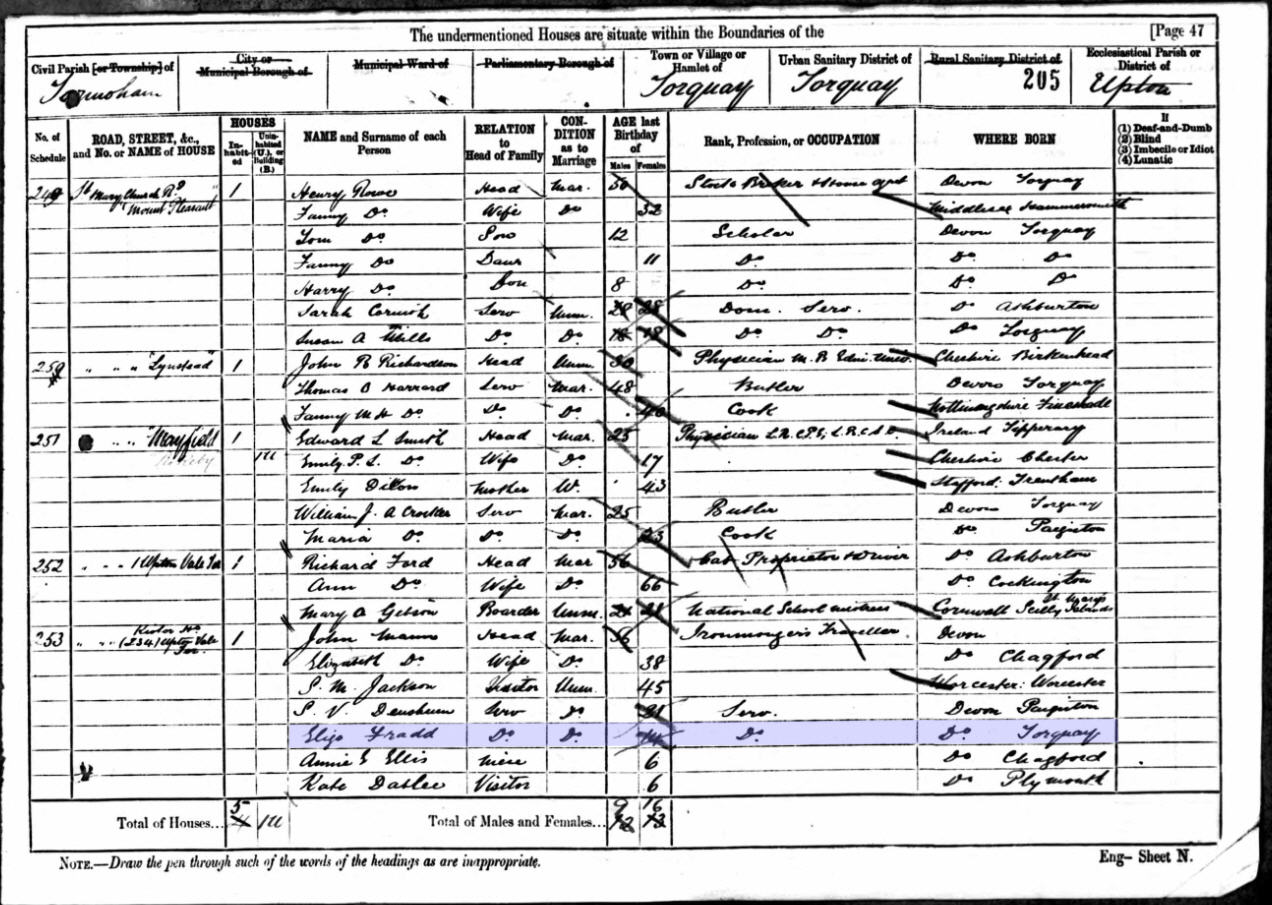 The undermentioned Houses are situate within the Boundaries of the [Page 47
Civil Parish [or Township] of Tormoham
City or Municipal Borough of
Municipal Ward of
Parliamentary Borough of
Town or Village or Hamlet of Torquay
Urban Sanitary District of Torquay
Rural Sanitary District of 205
Ecclesiastical Parish or District of Upton
No. of Schedule
ROAD, STREET, &c., and No. or NAME of HOUSE
HOUSES
In-habit-ed
Unin-habited (U.), or Building (B.)
NAME and Surname of each Person
RELATION to Head of Family
CON-DITION as to Marriage
AGE last Birthday of
Males
Females
Rank, Profession, or OCCUPATION
WHERE BORN
If
(1) Deaf-and-Dumb
(2) Blind
(3) Imbecile or Idiot
(4) Lunatic
249 St Mary Church Rd 1 Henry Rowe Head Mar. 50 Devon Torquay
"Mount Pleasant" Fanny Do Wife Do 32 Middlesex Hammersmith
Tom Do Son 12 Scholar Devon Torquay
Fanny Do Daur 11 Do Do Do
Harry Do Son 8 Do Do Do
Sarah Cornish Serv Unm. 28 28 Dom. Serv. Do Ashburton
Susan A Mills Do Do 18 18 Do Do Do Torquay
250 " " " "Lynstead" 1 John B Richardson Head Unm. 30 Physician M.B Edin. Univ. Cheshire Birkenhead
Thomas O Harrard Serv Mar. 48 Butler Devon Torquay
Fanny M H Do Do Do 40 Cook
251 " " "Mayfield" 1 Edward L Smith Head Mar. 25 Physician Ireland Tipperary
1U Emily P. L. Do Wife Do 17 Cheshire Chester
Emily Dillon Mother W. 43 Stafford. Trentham
William J. A Crocker Serv Mar. 25 Butler Devon Torquay
Maria Do Do Do 23 Cook Do Paignton
252 " " " 1 Upton Vale Ter 1 Richard Ford Head Mar 56 Cab Proprietor & Driver Do Ashburton
Ann Do Wife Do 66 Do Cockington
Mary A Gibson Boarder Unm. 21 21 National School mistress Cornwall Scilly Islands St Marys
253 " " (2 3 4) Upton Vale Ter 1 John Mann Head Mar. 56 Ironmongers Traveller. Devon
Elizabeth Do Wife Do 38 Do Chagford
S. M. Jackson Visitor Unm. 45 Worcester: Worcester
S. V. Denshum Serv Do 21 Serv. Devon Paignton
Eliza Fradd Do Do Do Do Torquay
Annie E Ellis Niece 6 Do Chagford
Kate Dablee Visitor 6 Do Plymouth
Total of Houses... 5 4 1U
Total of Males and Females... 9 16 12 13
NOTE.—Draw the pen through such of the words of the headings as are inappropriate.
Eng– Sheet N.